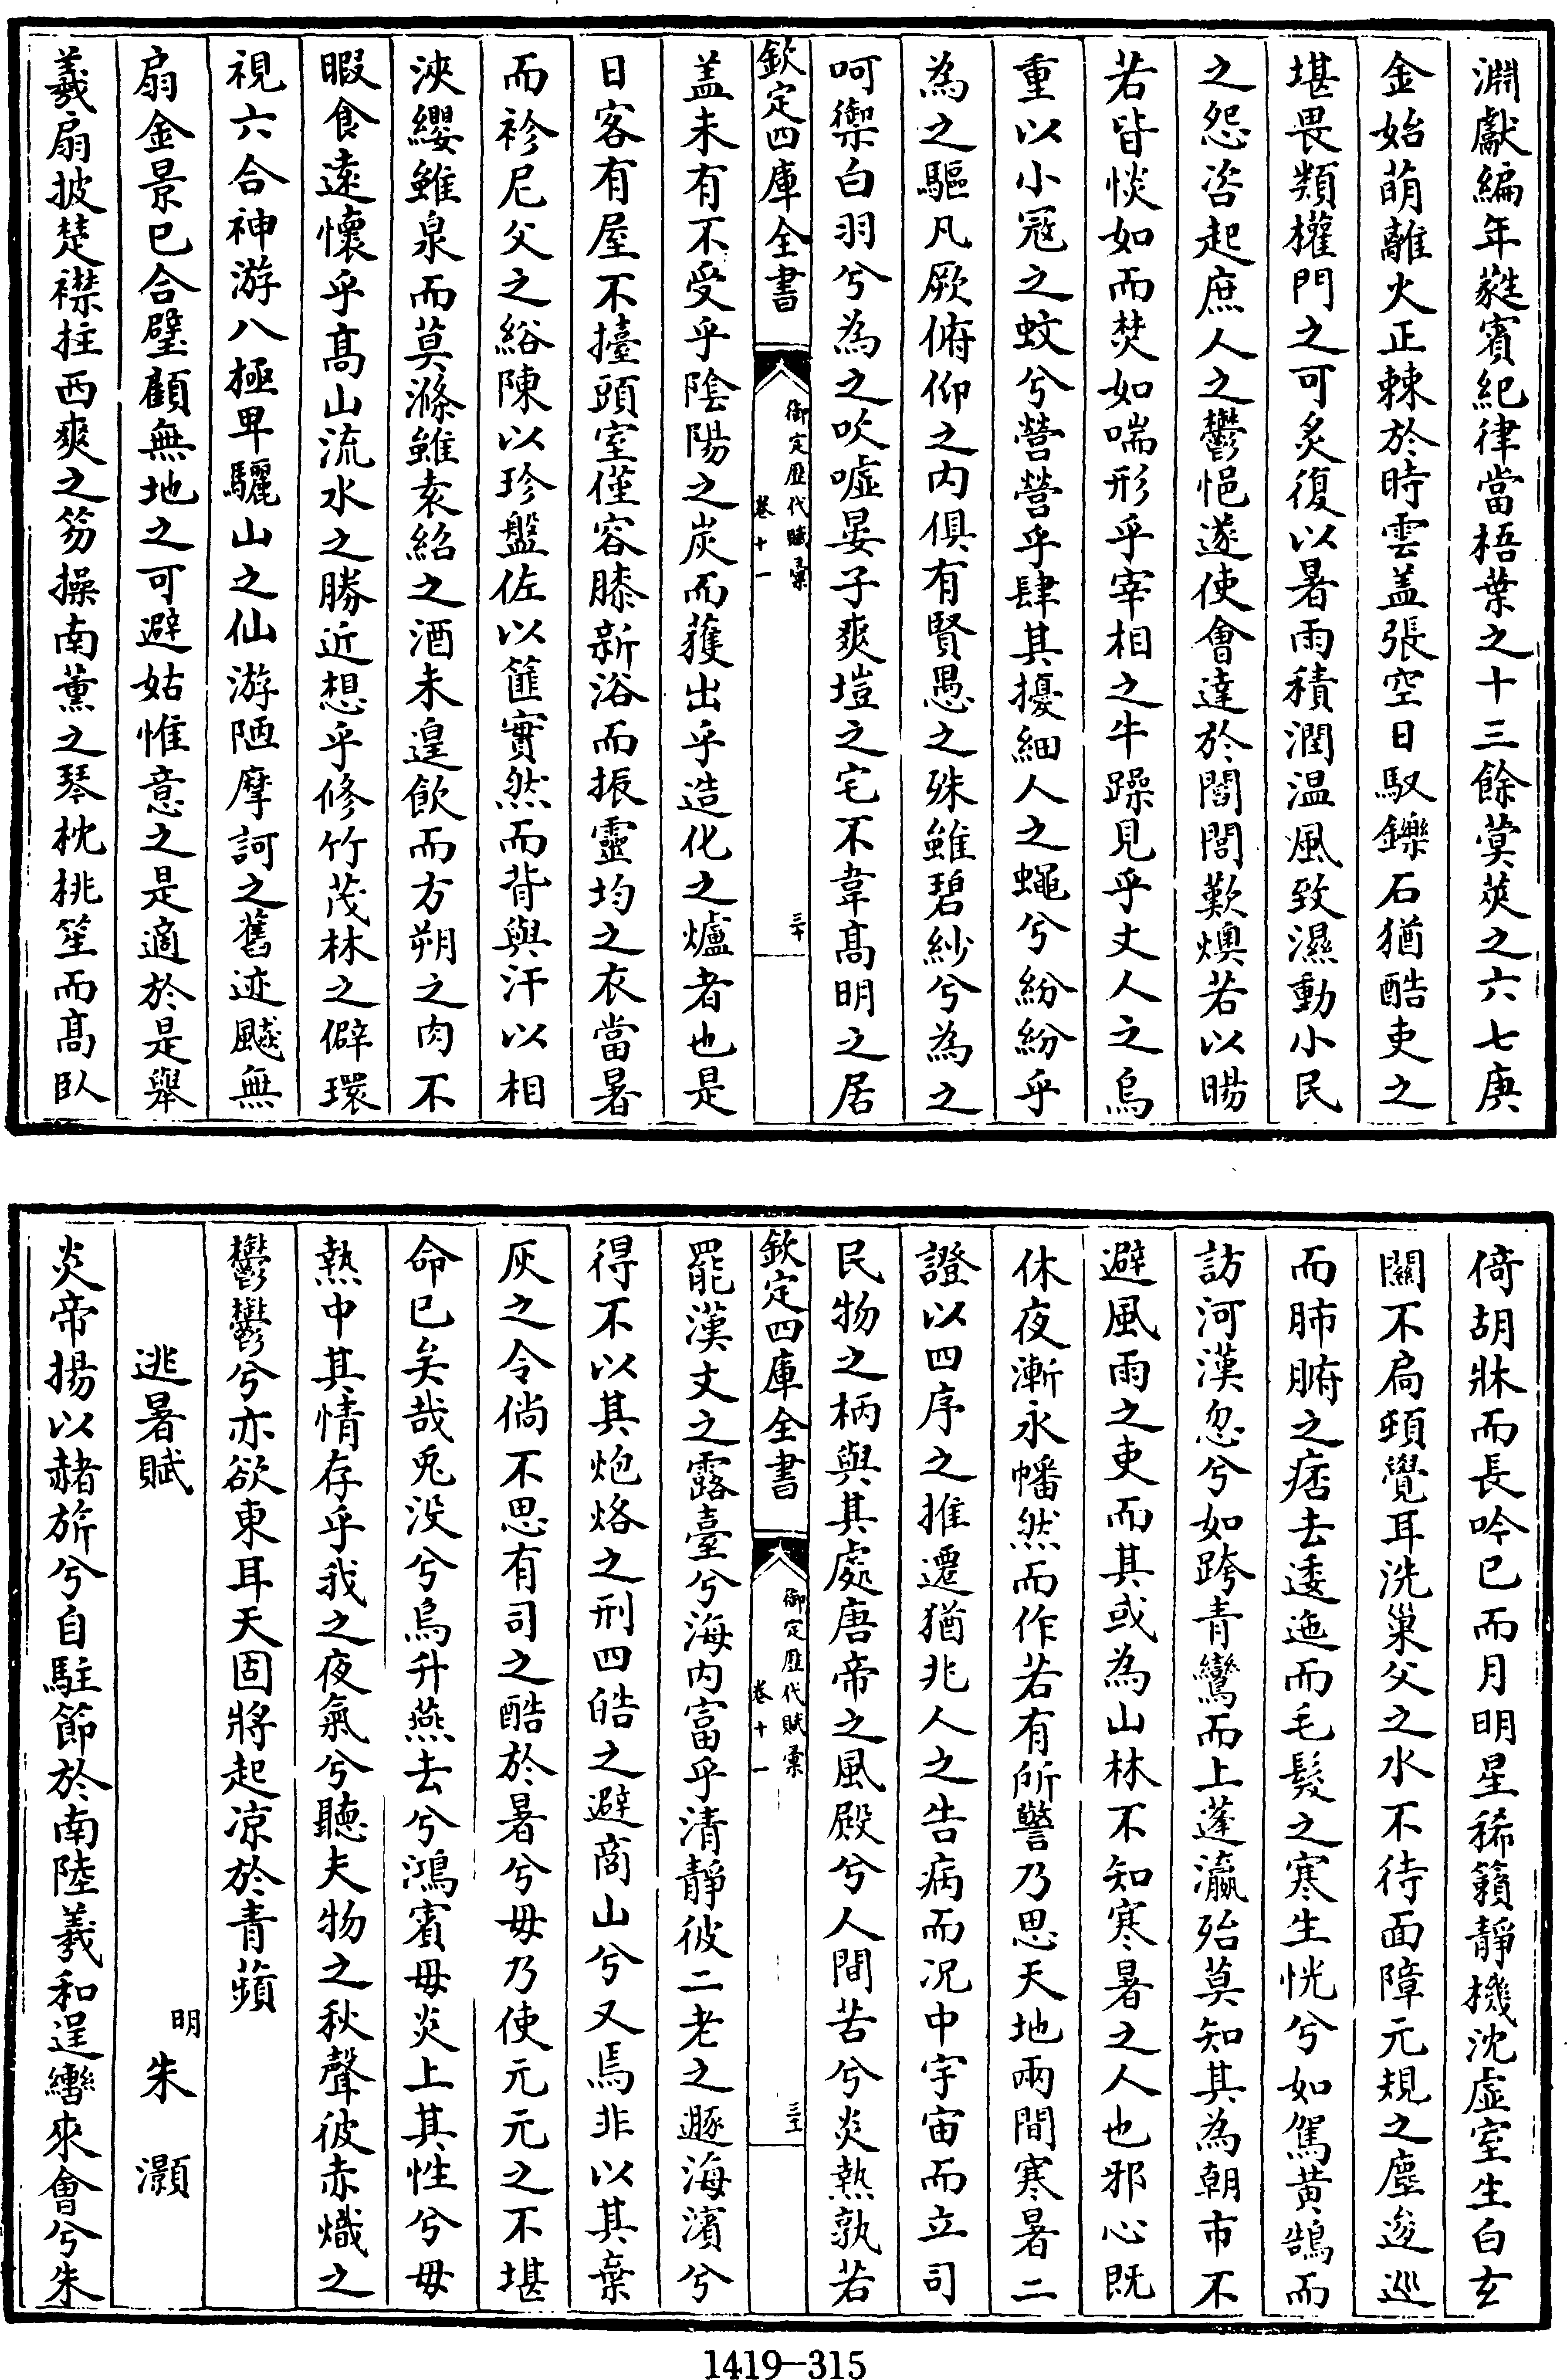 淵獻編年蕤賓紀律當梧葉之十三餘蓂莢之六七庚
金始萌離火正棘於時雲盖張空日馭鑠石猶酷吏之
堪畏類權門之可炙復以暑雨積潤温風致濕動小民
之怨咨起庶人之鬱悒遂使會達於閻閭歎燠若以暘
若皆惔如而焚如喘形乎宰相之牛躁見乎丈人之烏
重以小冦之蚊兮營營乎肆其擾細人之蠅兮紛紛乎
為之驅凡厥俯仰之内俱有賢愚之殊雖碧紗兮為之
呵禦白羽兮為之吹噓晏子爽塏之宅不韋髙明之居
欽定四庫全書
御定歷代賦彙
卷十一
三十
盖未有不受乎陰陽之炭而獲出乎造化之爐者也是
日客有屋不擡頭室僅容膝新浴而振靈均之衣當暑
而袗尼父之綌陳以珍盤佐以篚實然而背與汗以相
浹纓雖泉而莫滌雖袁紹之酒未遑飲而方朔之肉不
暇食逺懷乎髙山流水之勝近想乎修竹茂林之僻環
視六合神游八極卑驪山之仙游陋摩訶之舊迹飇無
扇金景巳合璧顧無地之可避姑惟意之是適於是舉
羲扇披楚襟拄西爽之笏操南薰之琴枕桃笙而髙臥
倚胡牀而長吟已而月明星稀籟靜機沈虚室生白玄
關不扃頓覺耳洗巢父之水不待面障元規之塵逡巡
而肺腑之痞去逶迤而毛髮之寒生恍兮如駕黄鵠而
訪河漢忽兮如跨青鸞而上蓬瀛殆莫知其為朝市不
避風雨之吏而其或為山林不知寒暑之人也邪心既
休夜漸永幡然而作若有所警乃思天地兩間寒暑二
證以四序之推遷猶兆人之告病而况中宇宙而立司
民物之柄與其處唐帝之風殿兮人間苦兮炎熱孰若
欽定四庫全書
御定歷代賦彙
卷十一
三十一
罷漢文之露臺兮海内富乎清靜彼二老之遯海濱兮
得不以其炮烙之刑四皓之避商山兮又焉非以其棄
灰之令倘不思有司之酷於暑兮毋乃使元元之不堪
命巳矣哉兎没兮烏升燕去兮鴻賓毋炎上其性兮毋
熱中其情存乎我之夜氣兮聽夫物之秋聲彼赤熾之
鬱鬱兮亦欲東耳天固將起凉於青蘋
逃暑賦
明 朱 灝
炎帝揚以赭旂兮自駐節於南陸羲和逞轡來會兮朱
1419-315